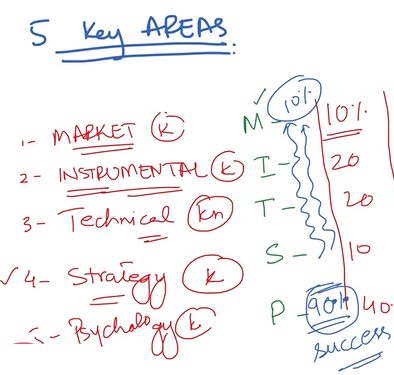 5 Key AREAS
1- MARKET K
2- INSTRUMENTAL K
3- Technical kn
✓ 4- Strategy K
5- Psychology K
M- 10% 10%
I- 20
T- 20
S- 10
P- 90% 40
success